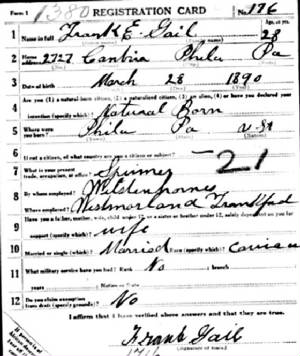 Form 1 1380 REGISTRATION CARD No. 176
1 Name in full Frank E. Gail 28
Age, in yrs.
2 Home address 2727 Cambria Phila Pa
3 Date of birth March 28 1890
Are you (1) a natural-born citizen, (2) a naturalized citizen, (3) an alien, (4) or have you declared your
4 intention (specify which)? Natural Born
5 Where were you born? Phila Pa
6 If not a citizen, of what country are you a citizen or subject?
7 What is your present trade, occupation, or office? Spinner 21
8 By whom employed?
Where employed? Westmorland Frankford
9 Have you a father, mother, wife, child under 12, or a sister or brother under 12, solely dependent on you for
support (specify which)? wife
10 Married or single (which)? Married Race (specify which)?
11 What military service have you had? Rank No branch
years Nation or State
12 Do you claim exemption from draft (specify grounds)? No
I affirm that I have verified above answers and that they are true.
Frank Gail
(Signature or mark)